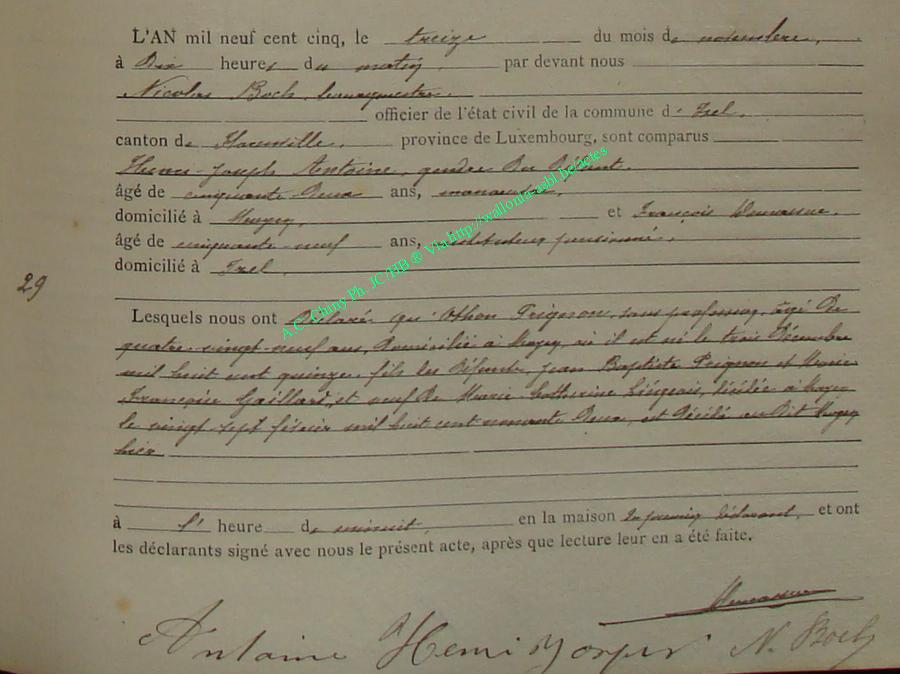 L'AN mil neuf cent cinq, le treize du mois de novembre,
à Dix heures du matin, par devant nous
Nicolas Boch, bourgmestre,
officier de l'état civil de la commune d'Izel,
canton de Florenville, province de Luxembourg, sont comparus
Henri-Joseph Antoine, gendre Du Défunt,
âgé de cinquante Deux ans, manoeuvre,
domicilié à Moyen, et François
âgé de cinquante-neuf ans, instituteur pensionné,
domicilié à Izel,
29
Lesquels nous ont Déclaré que Othon Peignon, sans profession, âgé De
quatre-vingt-neuf ans, Domicilié à Moyen, où il est né le trois Décembre
mil huit cent quinze, fils des Défunts, Jean Baptiste Peignon et Marie
Françoise Gaillard, et veuf De Marie Catherine Liégeois, décédée à Moyen
le vingt-sept février mil huit cent nonante Deux, est Décédé au Dit Moyen
hier
à l' heure de minuit, en la maison du premier déclarant, et ont
les déclarants signé avec nous le présent acte, après que lecture leur en a été faite.
Antoine Henri N. Boch
A.C. Chiny Ph. JC/HB ® Via http://wallonia-asbl.be/actes